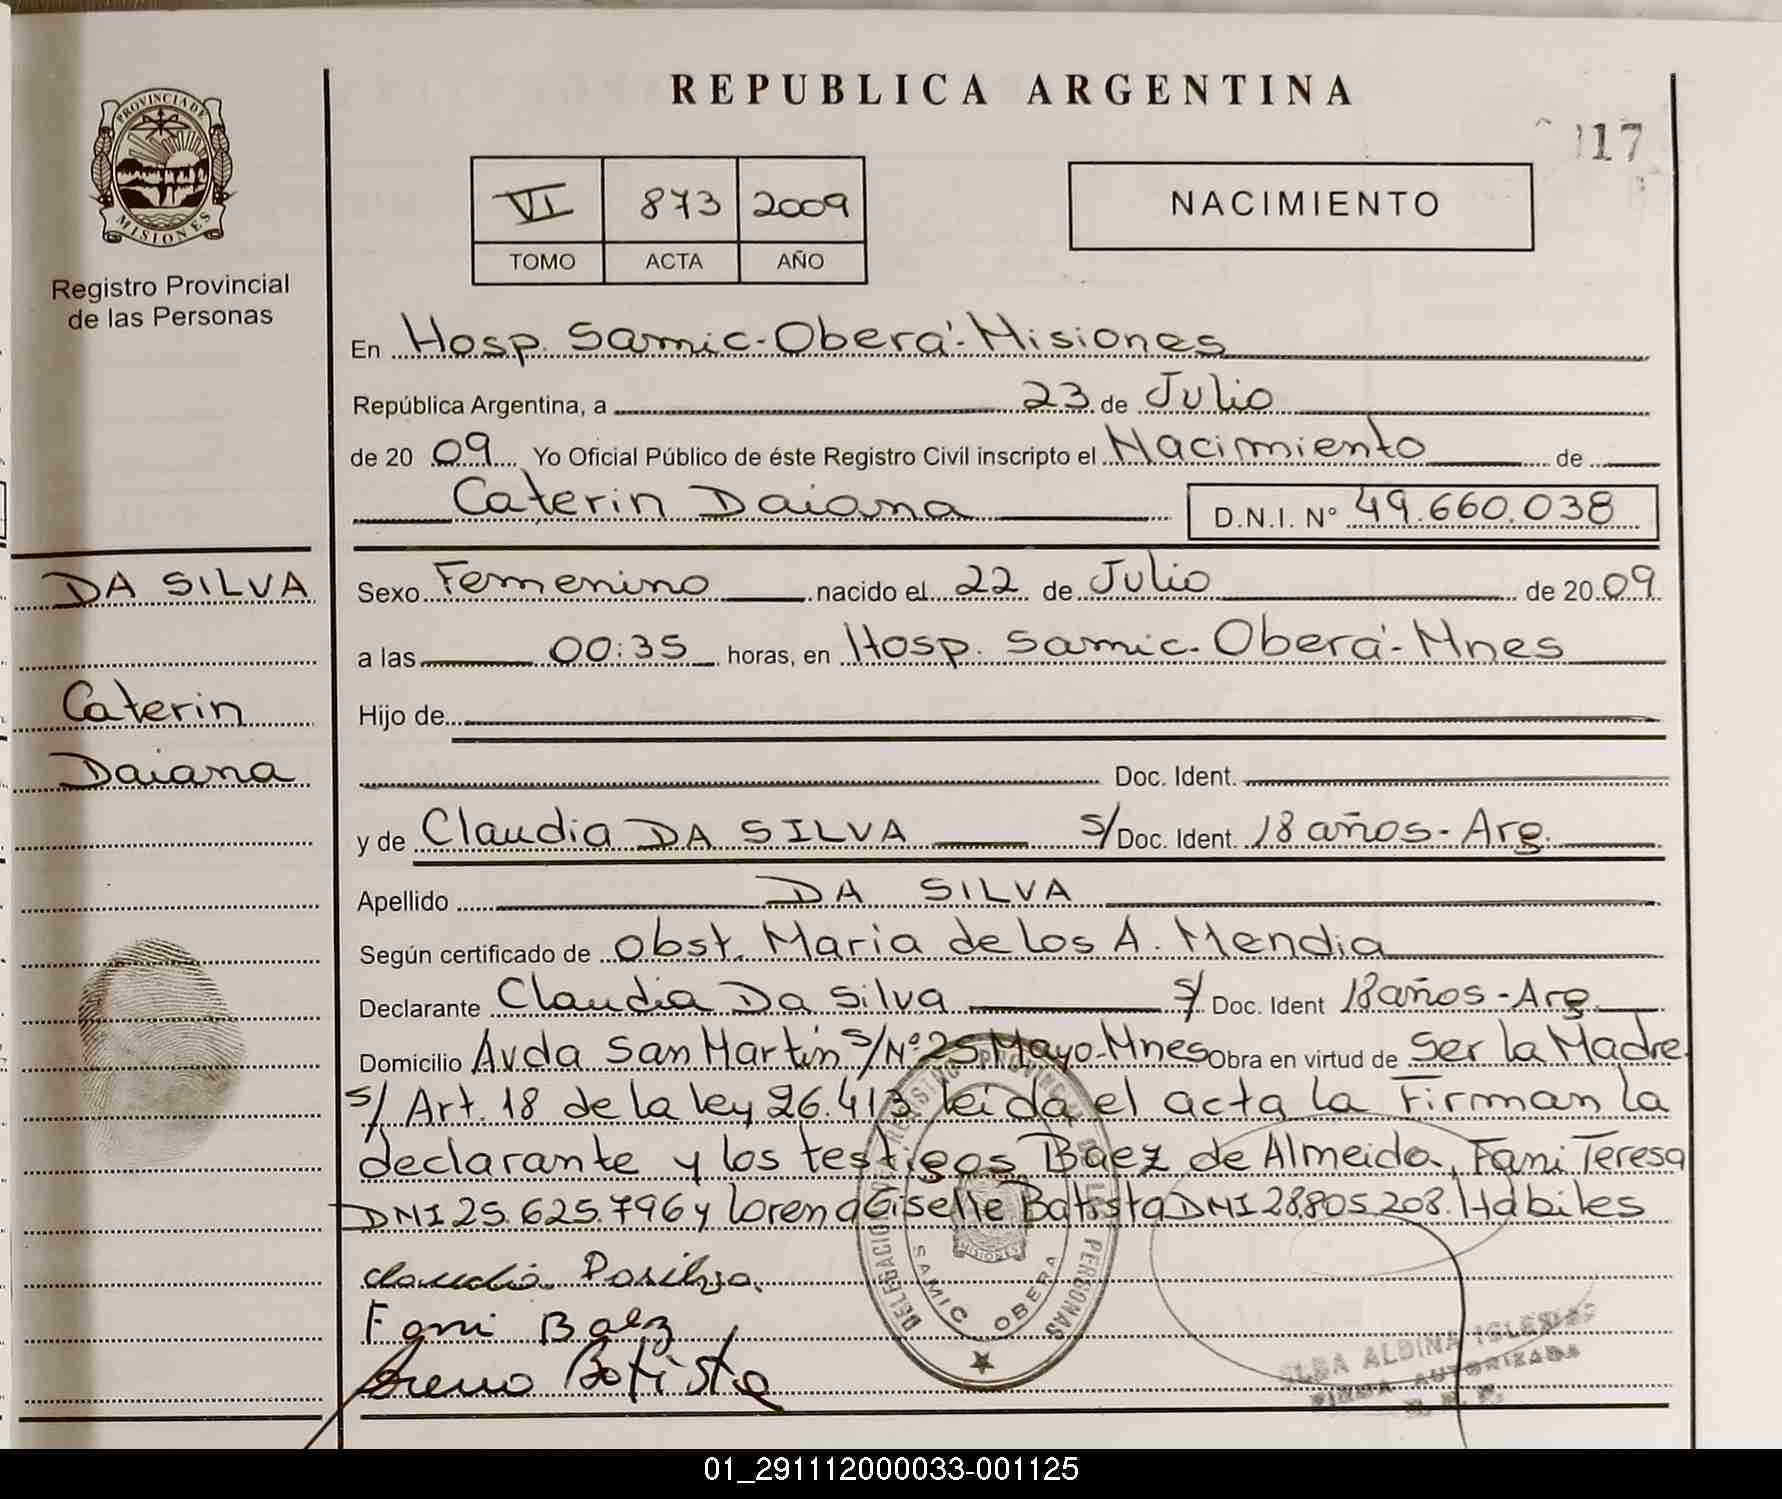 REPUBLICA ARGENTINA
117
PROVINCIA DE
MISIONES
Registro Provincial
de las Personas
VI 873 2009
TOMO ACTA AÑO
NACIMIENTO
En Hosp. Samic-Oberá-Misiones
República Argentina, a 23 de Julio
de 20 09 Yo Oficial Público de éste Registro Civil inscripto el Nacimiento de
Caterin Daiana D.N.I. N° 49.660.038
DA SILVA
Caterin
Daiana
Sexo Femenino nacido el 22 de Julio de 20 09
a las 00:35 horas, en Hosp. Samic-Oberá-Mnes
Hijo de
Doc. Ident.
y de Claudia DA SILVA s/ Doc. Ident. 18 años-Arg.
Apellido DA SILVA
Según certificado de Obst. Maria de los A. Mendia
Declarante Claudia Da Silva s/ Doc. Ident 18 años-Arg.
Domicilio Avda San Martin s/Nº 25 Mayo-Mnes Obra en virtud de Ser la Madre
s/ Art. 18 de la ley 26.413 leída el acta la Firman la
declarante y los testigos Baez de Almeida, Fani Teresa
DNI 25.625.796 y Lorena Giselle Batista DNI 28.805.208. Hábiles
claudia Dasilva.
Fani Baez
Lorena Batista
DELEGACION REGISTRO PROVINCIAL DE LAS PERSONAS
MISIONES
SAMIC OBERA
ELBA ALDINA IGLESIAS
FIRMA AUTORIZADA
R. P. P.
01_291112000033-001125